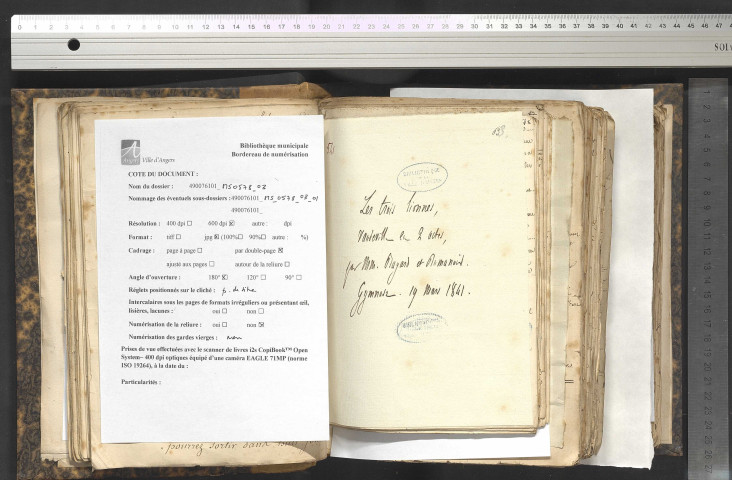 0 1 2 3 4 5 6 7 8 9 10 11 12 13 14 15 16 17 18 19 20 21 22 23 24 25 26 27 28 29 30 31 32 33 34 35 36 37 38 39 40 41 42 43 44 45 46 47
Ville d'Angers
Bibliothèque municipale
Bordereau de numérisation
COTE DU DOCUMENT :
Nom du dossier : 490076101_ MS0578_02
Nommage des éventuels sous-dossiers : 490076101_
490076101_
Résolution : 400 dpi ☐ 600 dpi ☒ autre : dpi
Format : tiff ☐ jpg ☒ (100% ☐ 90% ☐ autre : %)
Cadrage : page à page ☐ par double-page ☒
ajusté aux pages ☐ autour de la reliure ☐
Angle d'ouverture : 180° ☒ 120° ☐ 90° ☐
Réglets positionnés sur le cliché : p. de titre
Intercalaires sous les pages de formats irréguliers ou présentant œil,
lisières, lacunes : oui ☐ non ☐
Numérisation de la reliure : oui ☐ non ☒
Numérisation des gardes vierges : non
Prises de vue effectuées avec le scanner de livres i2s CopiBook™ Open
System- 400 dpi optiques équipé d'une caméra EAGLE 71MP (norme
ISO 19264), à la date du :
Particularités :
pourrez sortir sans
BIBLIOTHEQUE
Les trois lionnes,
Vaudeville en 2 actes,
par MM. Bayard et Dumanoir.
Gymnase. 19 Mars 1841.
1 2 3 4 5 6 7 8 9 10 11 12 13 14 15 16 17 18 19 20 21 22 23 24 25 26 27